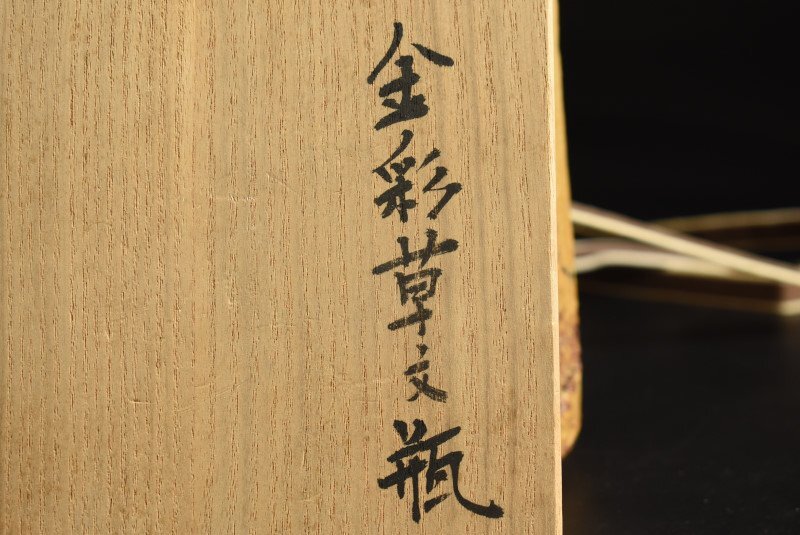 金彩草文瓶